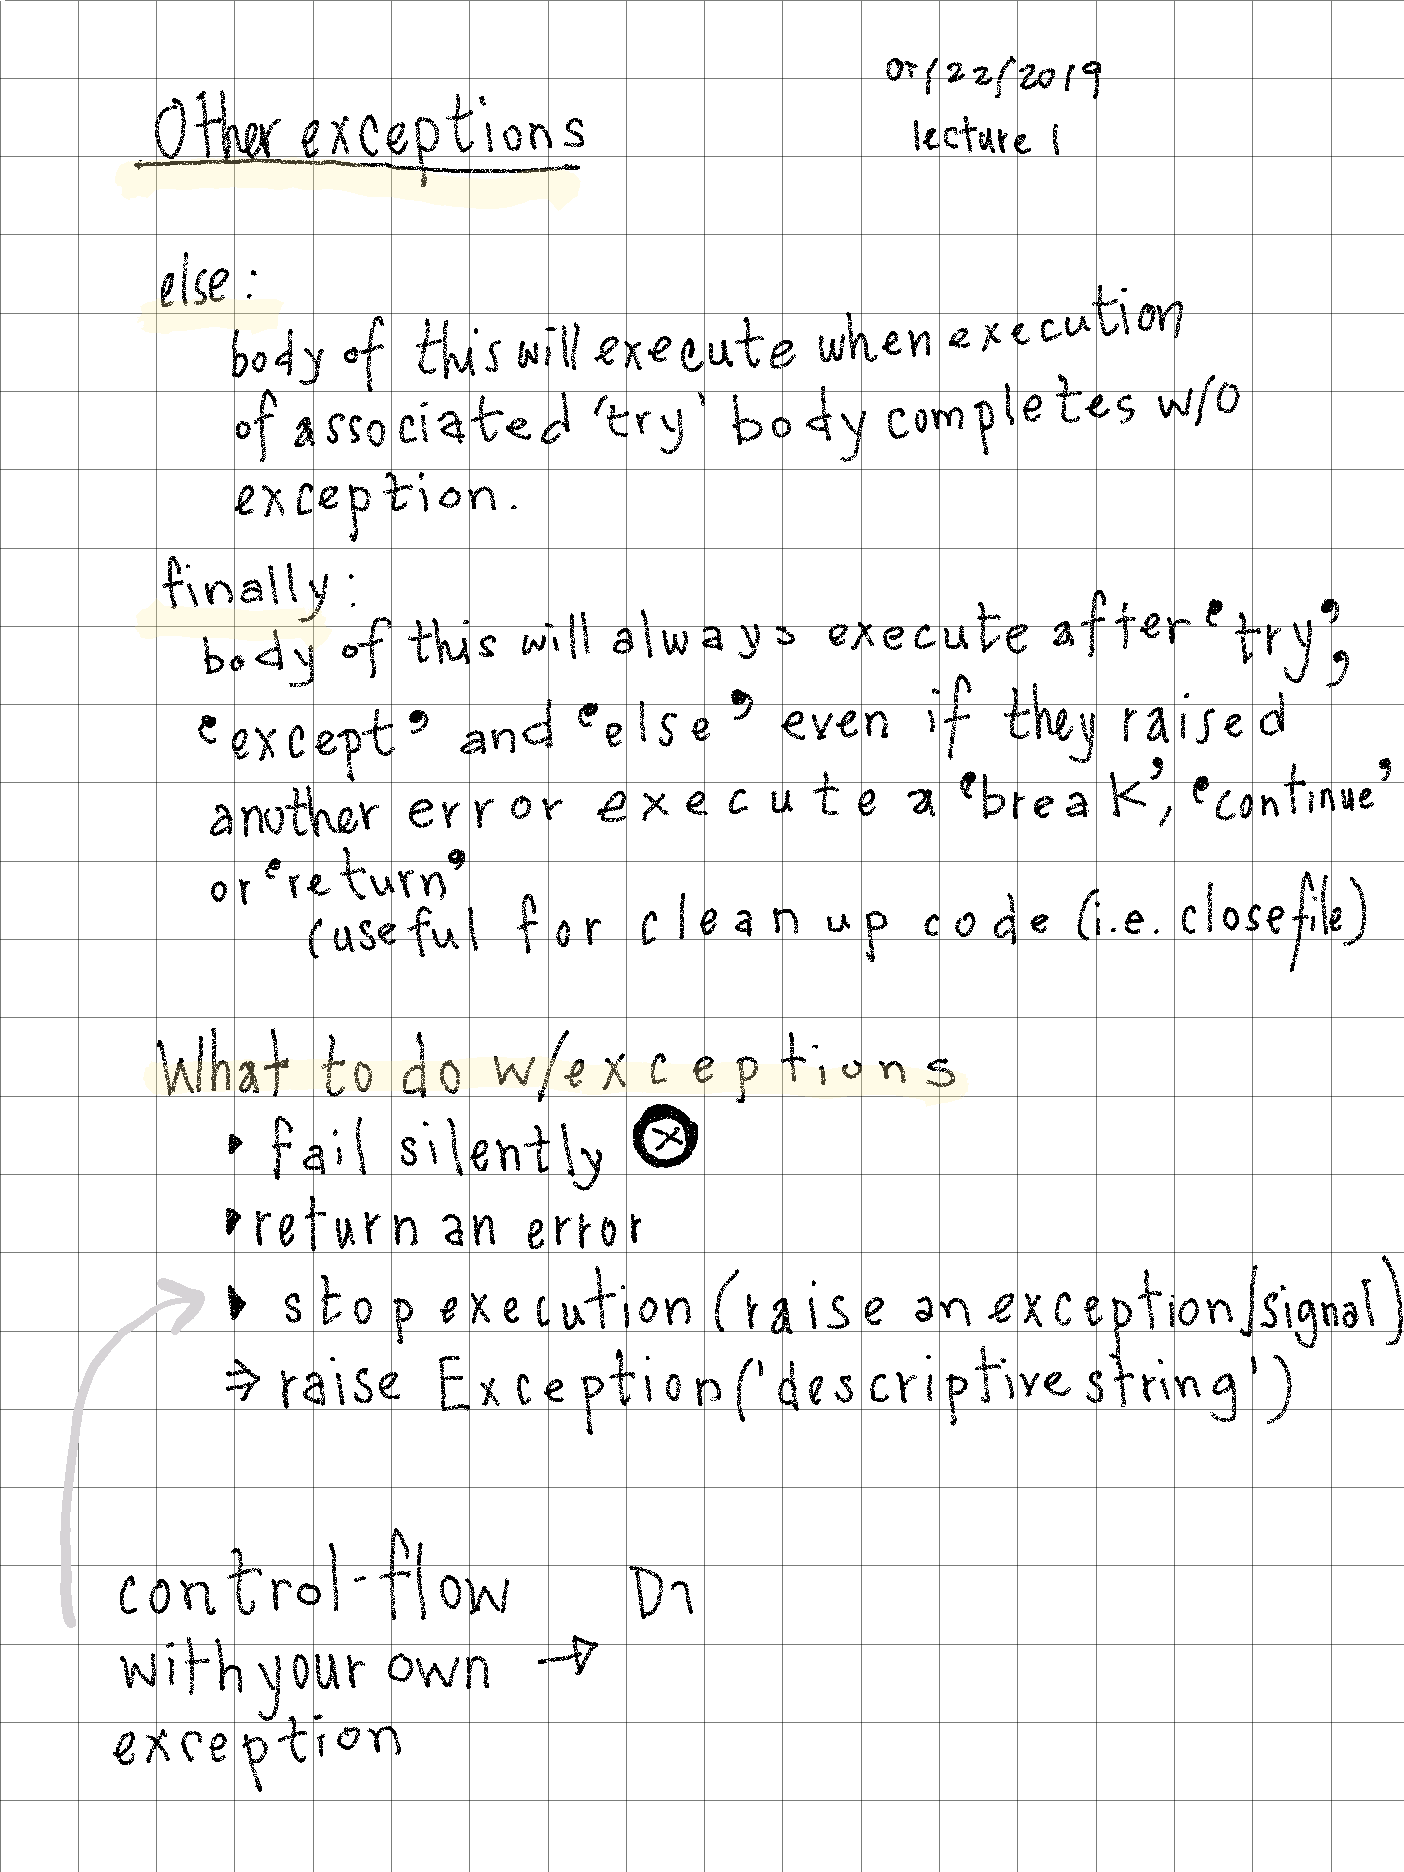 /22/2019
lecture 1
Other exceptions
else:
body of this will execute when execution
of associated 'try' body completes w/o
exception.
finally:
body of this will always execute after 'try',
'except' and 'else' even if they raised
another error execute a 'break', 'continue'
or 'return'
(useful for clean up code (i.e. close file)
What to do w/exceptions
• fail silently ⓧ
• return an error
• stop execution (raise an exception/signal)
⇒ raise Exception('descriptive string')
control-flow
with your own →
exception